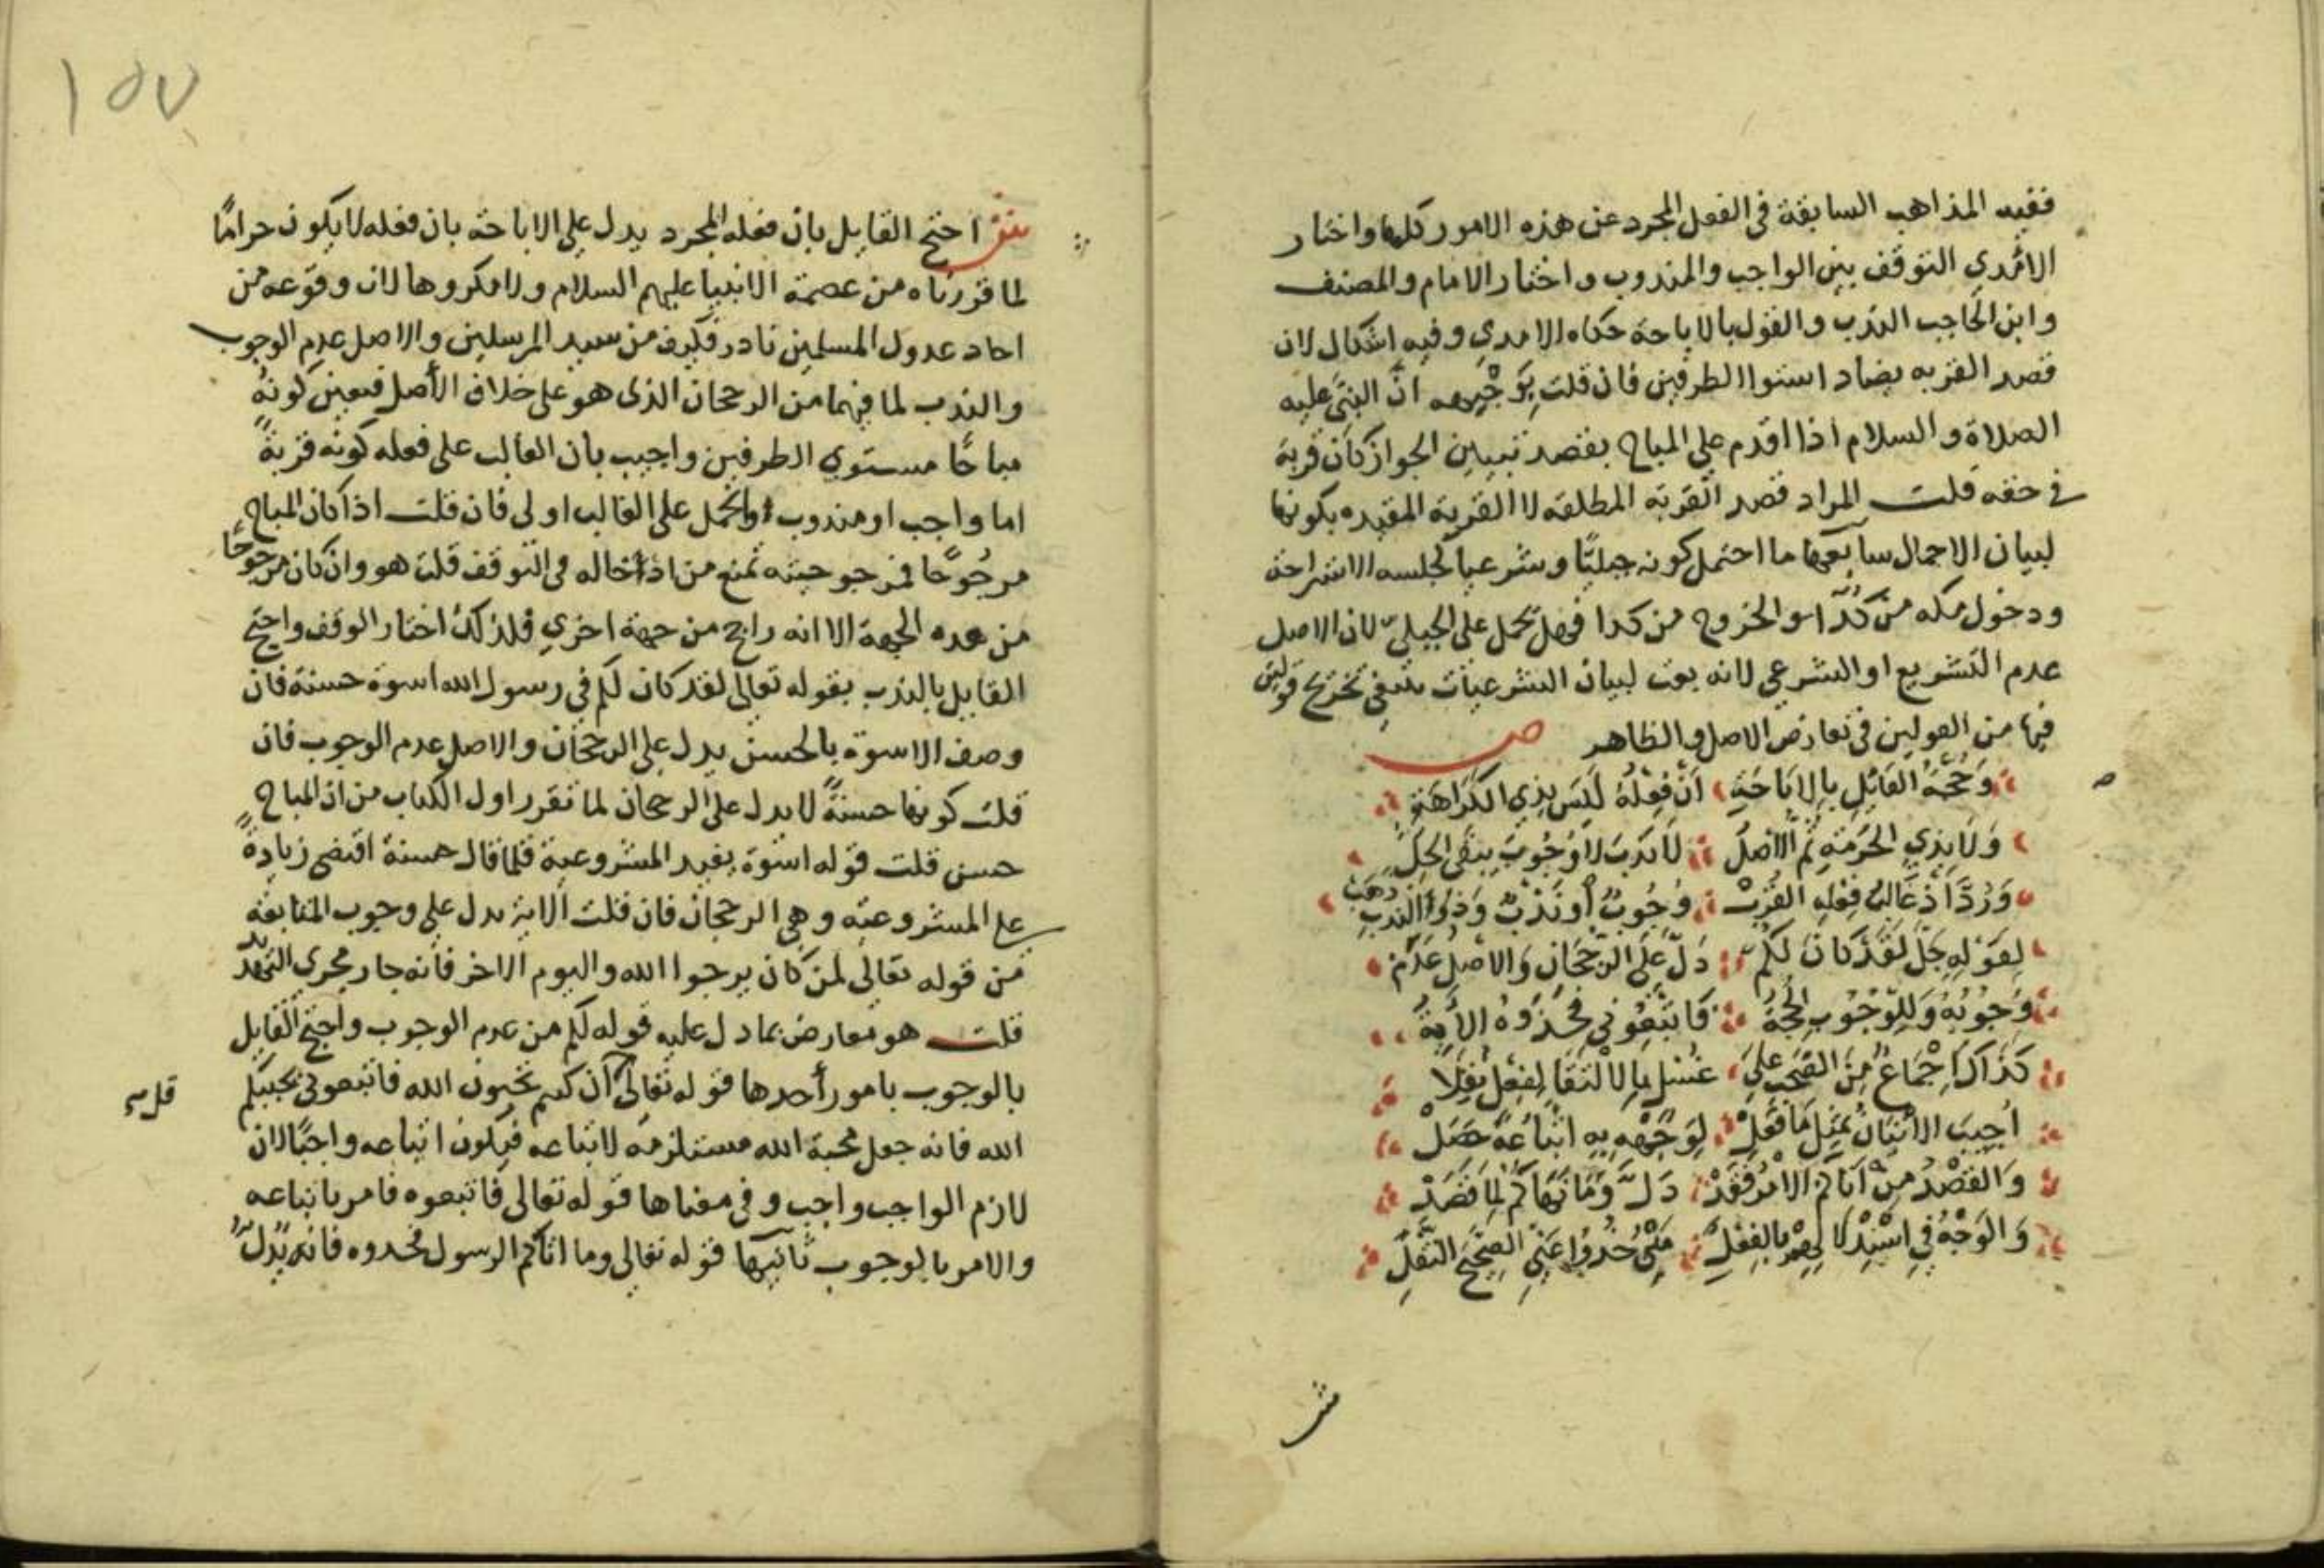 ففيه المذاهب السابقة في الفعل المجرد عن هذه الامور كلها واختار
الامدي التوقف بين الواجب والمندوب واختار الامام والمصنف
وابن الحاجب الندب والقول بالاباحة حكاه الامدي وفيه اشكال لان
قصد القربه يضاد استوا الطرفين فان قلت يوجيهه انّ النبي عليه
الصلاة والسلام اذا اقدم على المباح بقصد تبيين الجواز كان قربة
في حقه قلت المراد قصد القربة المطلقه لا القربة المقيده بكونها
لبيان الاجمال سابعها ما احتمل كونه جبليًّا وشرعيا كجلسه الاستراحة
ودخول مكه من كَدَا والخروج من كدا فهل يحمل على الجبليّ لان الاصل
عدم التشريع او الشرعي لانه بعث لبيان الشرعيات ينبغي تخريج قولين
فيها من القولين في تعارض الاصل والظاهر ص
وَحُجَّةُ القَائِلِ بِالاِبَاحَةِ اَنْ فِعْلُهُ لَيْسَ بِذِي الكَرَاهَةِ
وَلَا بِذِي الحَرَمَةِ ثُمَّ الاَصْلُ لَا نَدْبَ لَا وُجُوبَ يَبْقَى الحِلُّ
وَرُدَّ اذْ غَالِبُ فِعْلِهِ القُرَبْ وُجُوبٌ أَو نَدْبٌ وَذُو النَّدْبِ ذَهَبْ
لِقَوْلِهِ جَلَّ لَقَدْ كَانَ لَكُمْ دَلَّ عَلَى الرَّجْحَانِ وَالاَصْلُ عَدَمْ
وُجُوبُهُ وَلِلْوُجُوبِ الحُجَّةُ فَاتَّبِعُونِي فَخُذُوهُ الأَيَةُ
كَذَاكَ اِجْمَاعٌ مِنَ الصَّحْبِ عَلَى غُسْلٍ بِالاِلْتِقَا لِفِعْلٍ نُقِلَا
اُجِيبَ الاِتْيَانُ بِمِثْلِ مَا فَعَلْ لِوَجْهِهِ بِهِ اتِّبَاعُهُ حَصَلْ
وَالقَصْدُ مِنْ آتَاكُمُ الاَمْرُ فَقَدْ دَلَّ وَمَا نَهَاكُمُ لِمَا قَصَدْ
وَالوَجْهُ فِي اسْتِدْلَالِهِمْ بِالفِعْلِ خُذُوا عَنِّي الصَّحِيحَ النَّقْلِ
ش
١٥٧
ش احتج القايل بان فعله المجرد يدل على الاباحة بان فعله لا يكون حرامًا
لما قررناه من عصمة الانبيا عليهم السلام ولا مكروها لان وقوعه من
احاد عدول المسلمين نادر فكيف من سيد المرسلين والاصل عدم الوجوب
والندب لما فيهما من الرجحان الذي هو على خلاف الأصل فتعين كونُه
مباحًا مستوي الطرفين واجيب بان الغالب على فعله كونه قربةً
اما واجب او مندوب والحمل على الغالب اولى فان قلت اذا كان المباح
مرجُوحًا فمرجوحيته تمنع من ادخاله في التوقف قلت هو وان كان مرجوحًا
من هذه الجهة الا انه راجح من جهة اخري فلذلك اختار الوقف واحتج
القايل بالندب بقوله تعالى لقد كان لكم في رسول الله اسوة حسنة فان
وصف الاسوة بالحسن يدل على الرجحان والاصل عدم الوجوب فان
قلت كونها حسنةً لا يدل على الرجحان لما تقرر اول الكتاب من ان المباح
حسن قلت قوله اسوة يفيد المشروعية فلما قال حسنة اقتضى زيادةً
على المشروعيه وهي الرجحان فان قلت الاية تدل على وجوب المتابعة
من قوله تعالى لمن كان يرجوا الله واليوم الاخر فانه جار مجرى التهديد
قلت هو معارض بما دل عليه قوله لكم من عدم الوجوب واحتج القايل
بالوجوب بامور أحدها قوله تعالى ان كنتم تحبون الله فاتبعوني يحببكم
الله فانه جعل محبة الله مستلزمة لاتباعه فيكون اتباعه واجبًا لان
لازم الواجب واجب وفي معناها قوله تعالى فاتبعوه فامر باتباعه
والامر بالوجوب ثانيها قوله تعالى وما اتاكم الرسول فخذوه فانه يدلّ